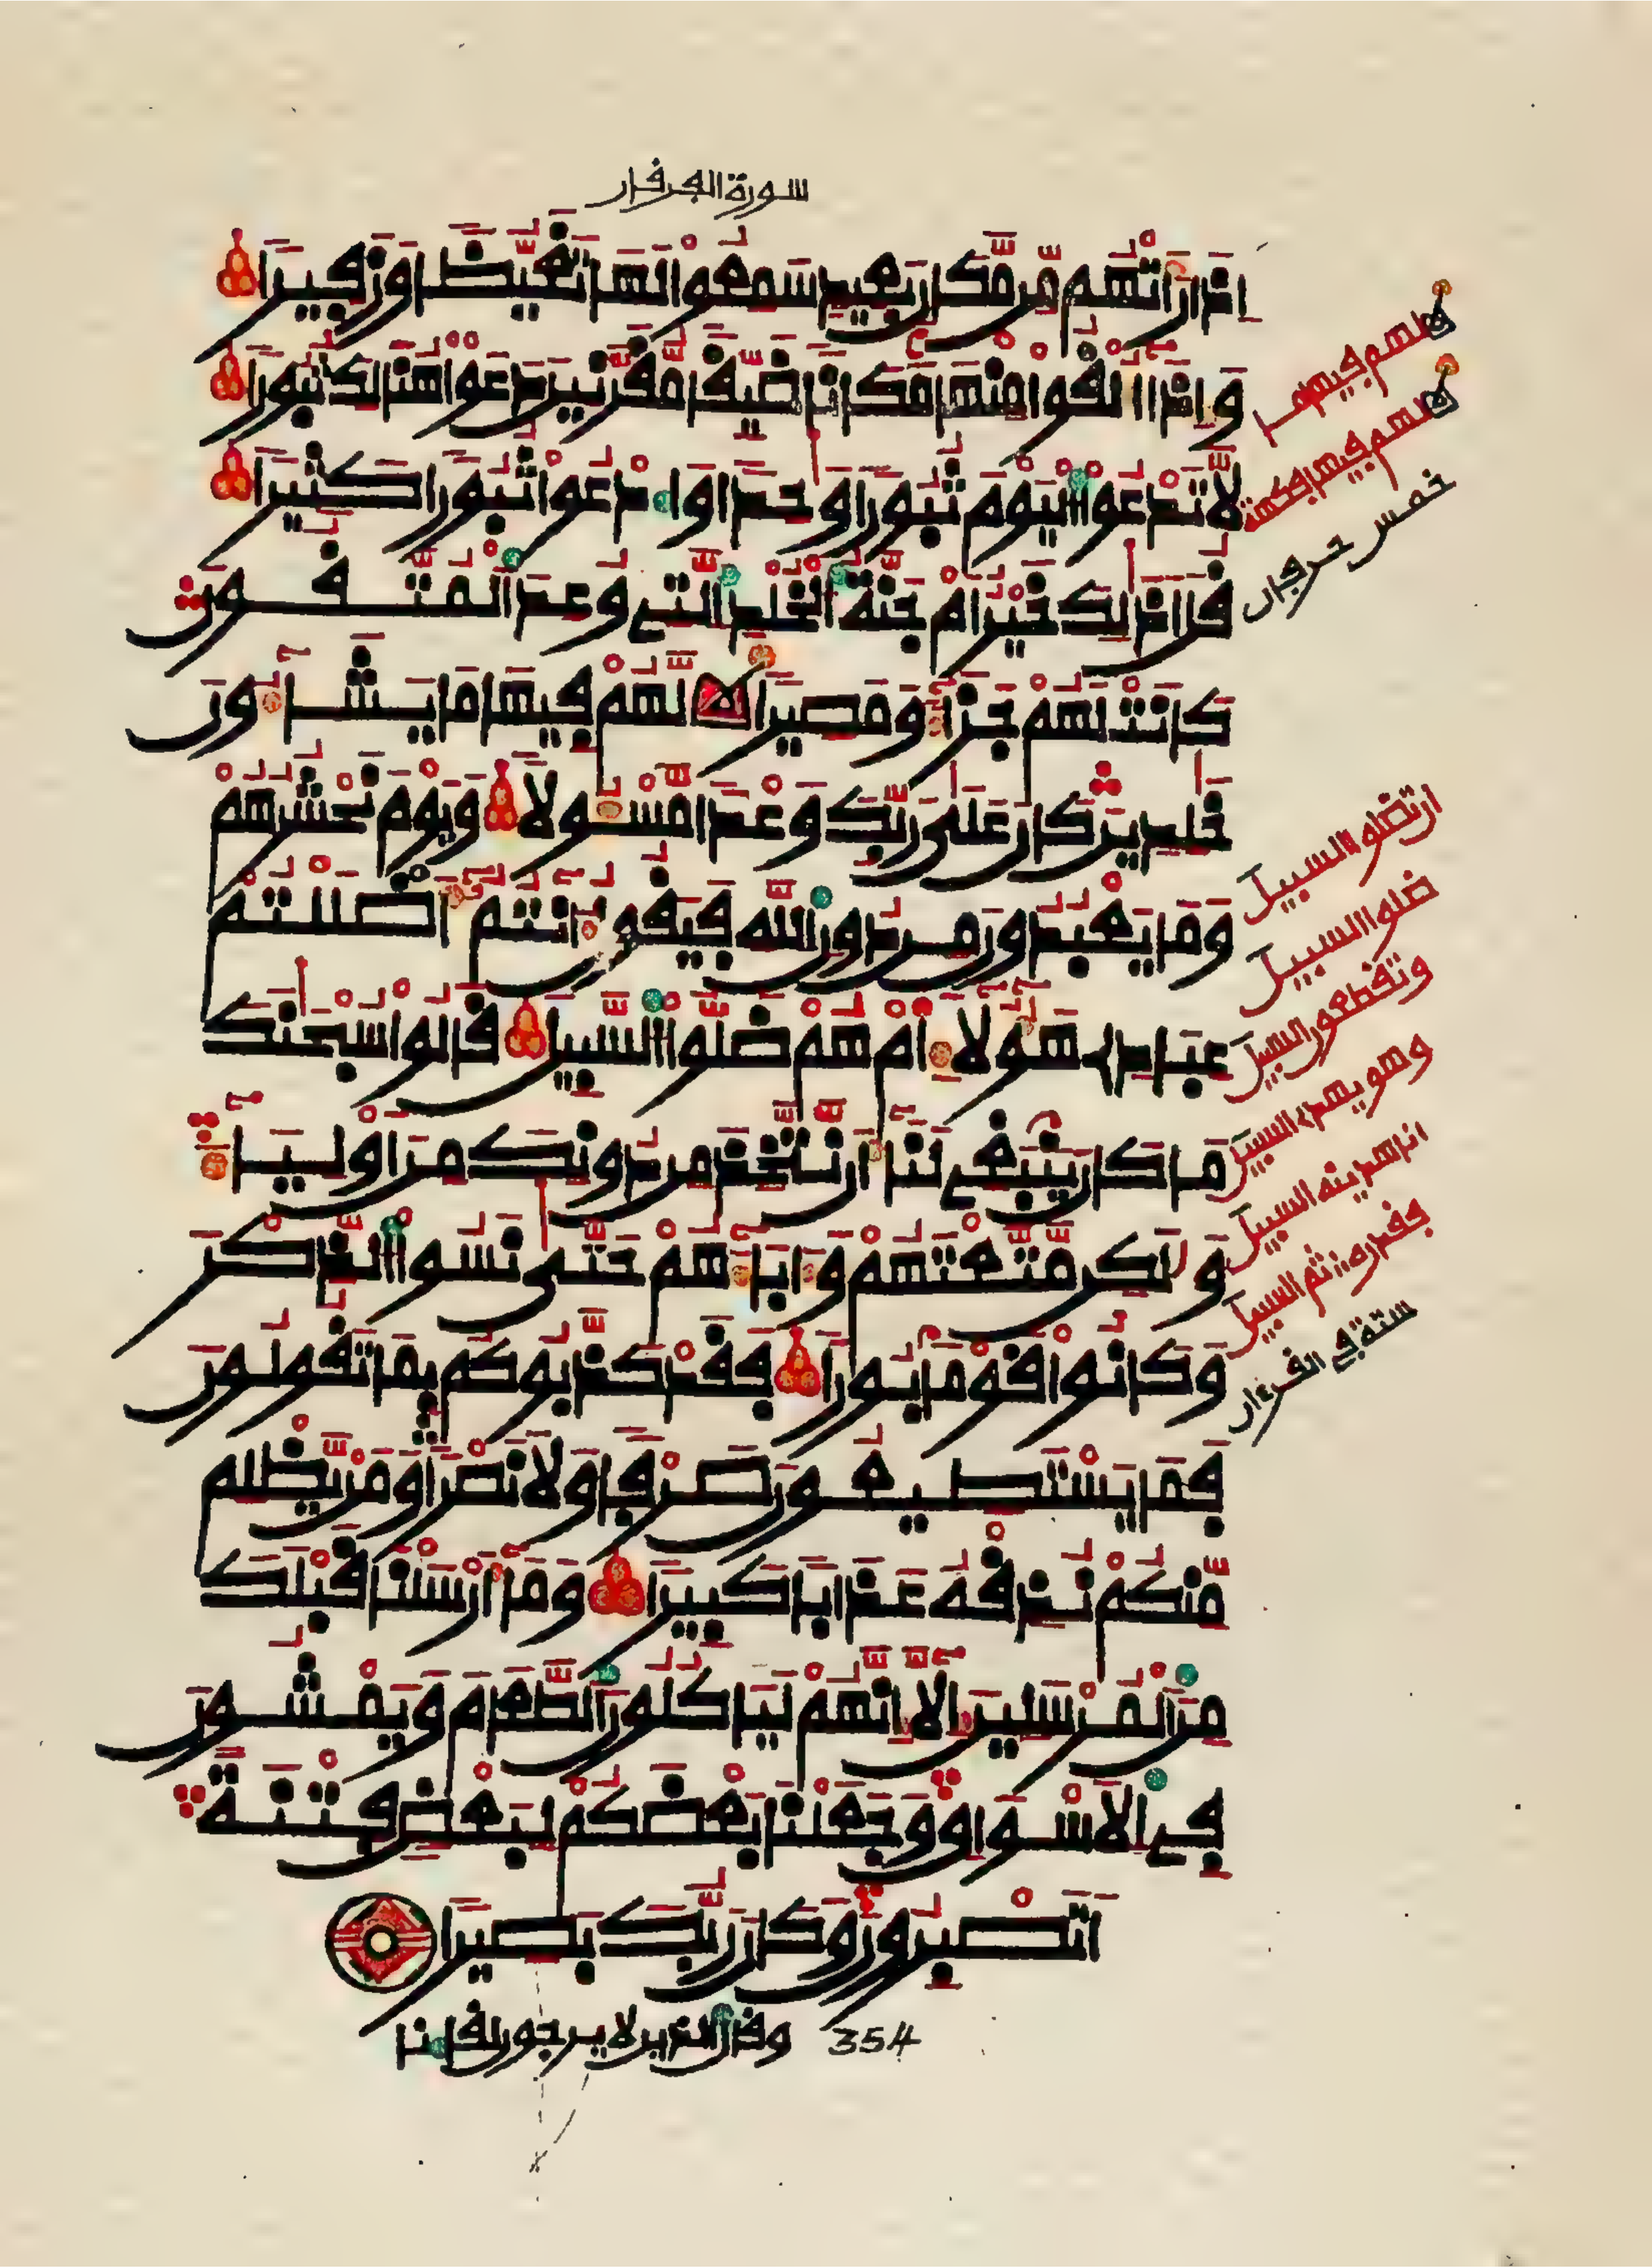 سورة الفرقان
اذا راتهم من مكان بعيد سمعوا لها تغيظا وزفيرا
واذا القوا منها مكانا ضيقا مقرنين دعوا هنالك ثبورا
لا تدعوا اليوم ثبورا وحدا وادعوا ثبورا كثيرا
قل اذلك خير ام جنة الخلد التي وعد المتقون
كانت لهم جزاء ومصيرا لهم فيها ما يشاءون
خلدين كان على ربك وعدا مسولا ويوم نحشرهم
وما يعبدون من دون الله فيقول ءانتم اضللتم
عبادي هؤلاء ام هم ضلوا السبيل قالوا سبحنك
ما كان ينبغي لنا ان نتخذ من دونك من اولياء
ولكن متعتهم وءاباءهم حتى نسوا الذكر
وكانوا قوما بورا فقد كذبوكم بما تقولون
فما يستطيعون صرفا ولا نصرا ومن يظلم
منكم نذقه عذابا كبيرا وما ارسلنا قبلك
من المرسلين الا انهم لياكلون الطعام ويمشون
في الاسواق وجعلنا بعضكم لبعض فتنة
اتصبرون وكان ربك بصيرا
وقال الذين لا يرجون لقاءنا 354
لهم فيها ما
لهم فيها فكهة
خمس حرفان
ان تضلوا السبيل
ضلوا السبيل
وتقطعون السبيل
وهو يهدي السبيل
انا هدينه السبيل
فقدره ثم السبيل
ستة في القرءان